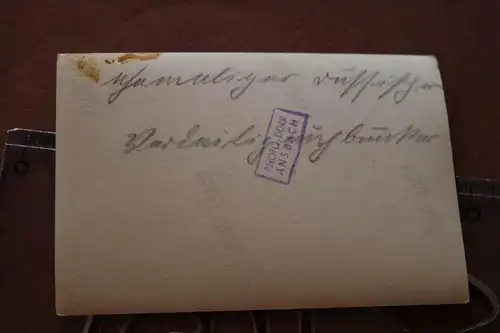 ehemaliger russischer
Verdeidigungsbunker
PHOTO-DÖRR
ANSBACH